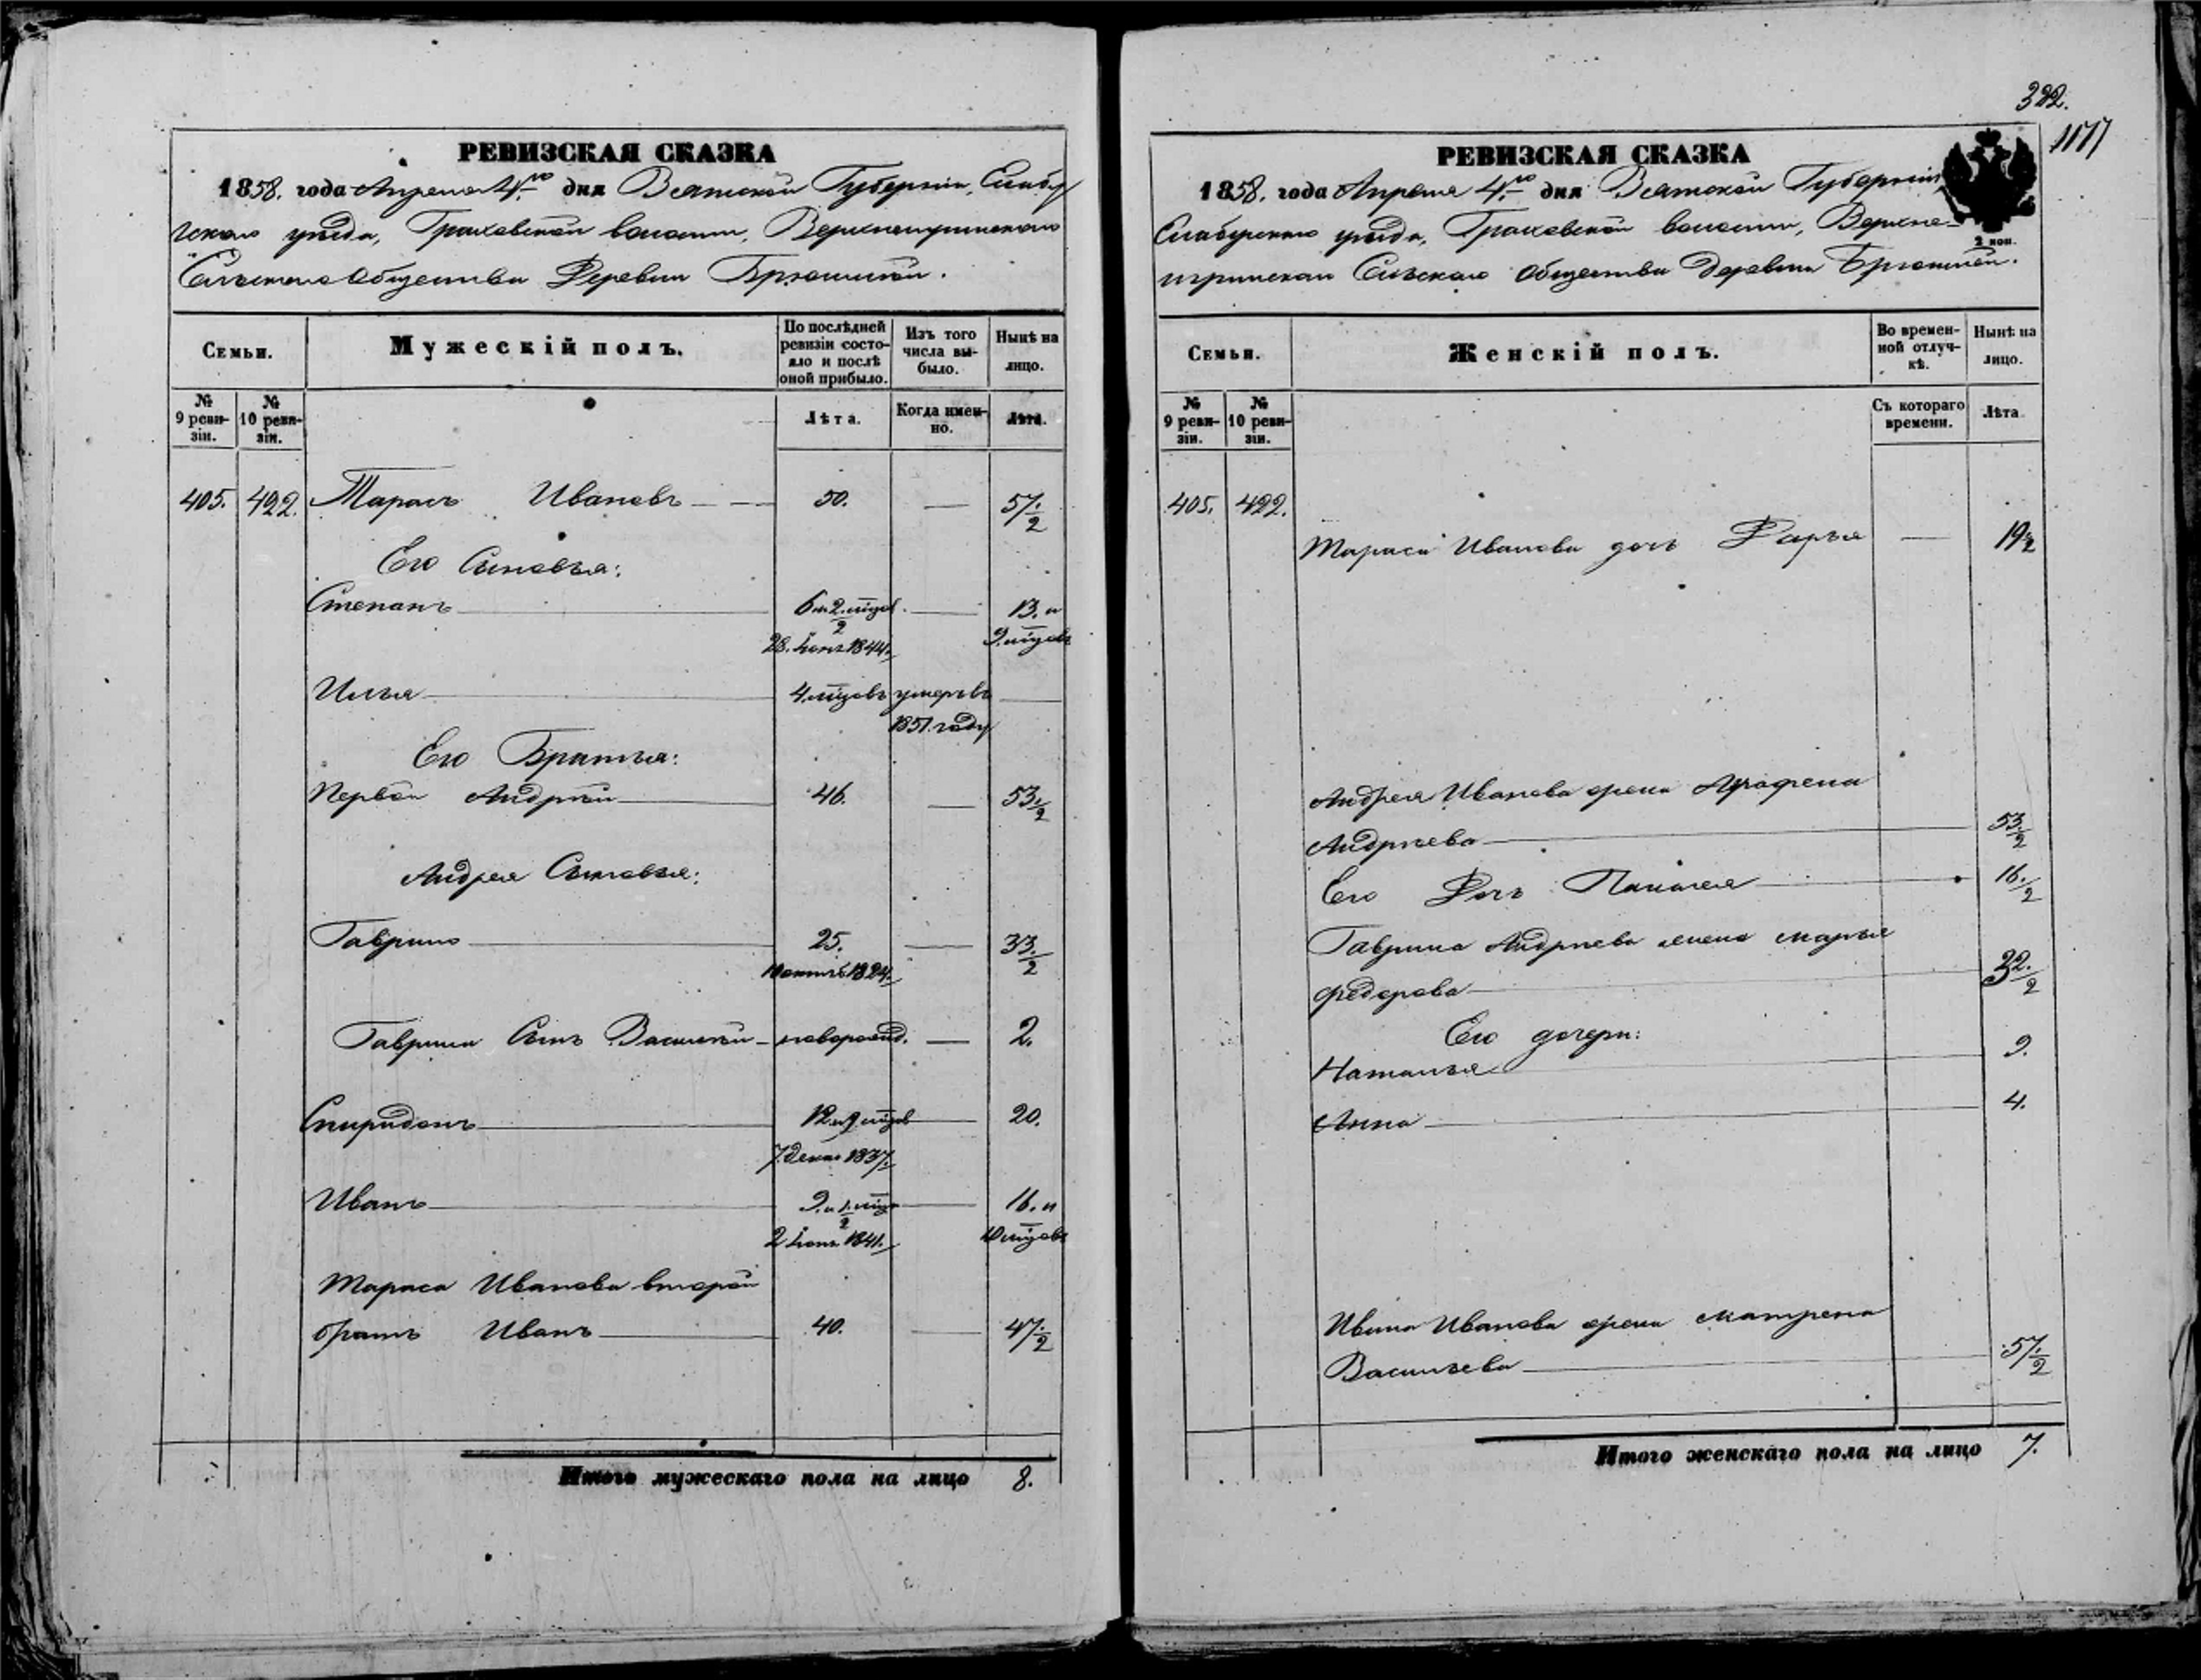 РЕВИЗСКАЯ СКАЗКА
1858. года Апреля 4го дня Вятской Губерніи, Елабу
гскаго уѣзда, Граховской волости, Верхнеигринскаго
Сельскаго Общества Деревни Брюшиной.
Семьи.
Мужескій полъ.
По послѣдней
ревизіи состо-
яло и послѣ
оной прибыло.
Изъ того
числа вы-
было.
Нынѣ на
лицо.
№
9 реви-
зіи.
№
10 реви-
зіи.
Лѣта.
Когда имен-
но.
Лѣта.
405. 422. Тарасъ Ивановъ 50. — 57 1/2
Его Сыновья:
Степанъ 6 и 2 мѣсяц. — 13. и
28. Іюня 1844. 9 мѣсяцовъ
Илья 4 мѣсяцовъ умеръ въ —
1851. году
Его Братья:
Первой Андрей 46. — 53 1/2
Андрея Сыновья:
Гаврило 25. — 33 1/2
10 октяб 1824.
Гаврила Сынъ Василей новорожд. — 2.
Спиридонъ 12 и 9 мѣсяцов — 20.
7 декаб 1837.
Иванъ 9. и — 16. и
2 Іюня 1841. 10 мѣсяцовъ
Тараса Иванова второй
братъ Иванъ 40. — 47 1/2
Итого мужескаго пола на лицо 8.
322.
1177
РЕВИЗСКАЯ СКАЗКА
1858. года Апреля 4го дня Вятской Губерніи
Елабугскаго уѣзда, Граховской волости, Верхне-
2 коп.
игринскаго Сельскаго Общества Деревни Брюшиной.
Семьи.
Женскій полъ.
Во времен-
ной отлуч-
кѣ.
Нынѣ на
лицо.
№
9 реви-
зіи.
№
10 реви-
зіи.
Съ котораго
времени.
Лѣта
405. 422.
Тараса Иванова дочь Дарья — 19 1/2
Андрея Иванова жена Аграфена
Андреева 53 1/2
Его Дочь Пелагея 16 1/2
Гаврила Андреева жена Марья
Федорова 32 1/2
Его дочери:
Наталья 9.
Анна 4.
Ивана Иванова жена Матрена
Васильева 57 1/2
Итого женскаго пола на лицо 7.